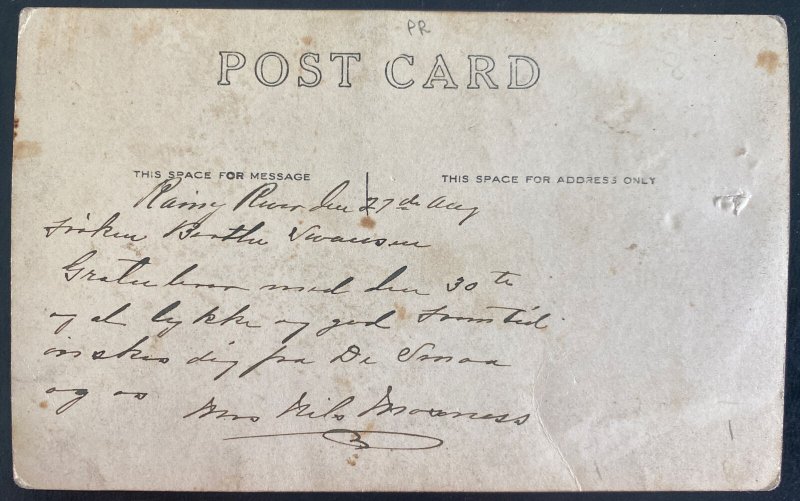 PR
POST CARD
THIS SPACE FOR MESSAGE
THIS SPACE FOR ADDRESS ONLY
Rainy River den 27de Aug
Frøken Berthe Swansen
Gratulerer med den 30te
og al lykke og god fremtid
ønskes dig fra De Smaa
og os Mrs Nils Mosness